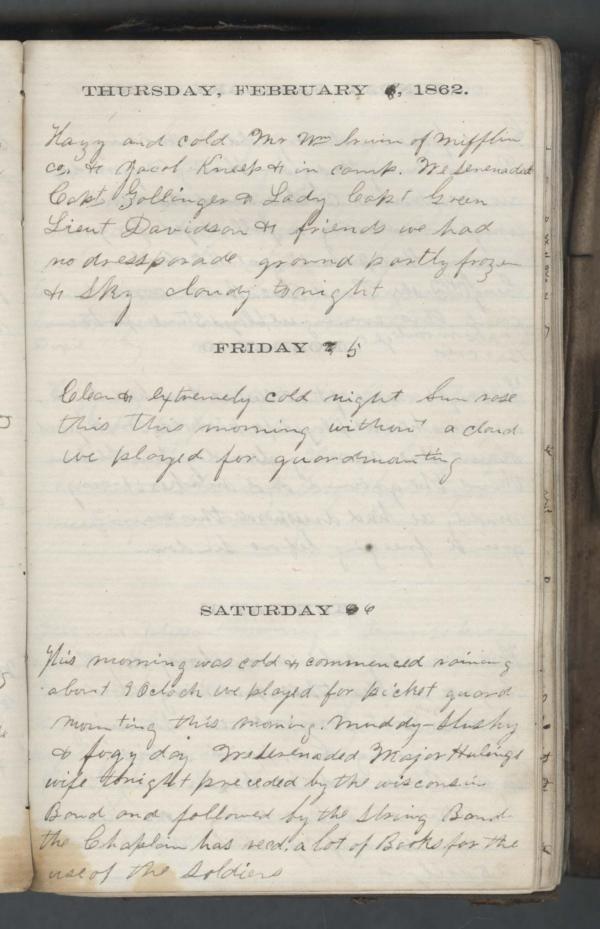 THURSDAY, FEBRUARY 6, 1862.
Hazy and cold Mr Wm Irwin of Mifflin
co. & Jacob Kneep & in camp. We serenaded
Capt Zollinger & Lady Capt Green
Lieut Davidson & friends we had
no dressparade ground partly frozen
& sky cloudy tonight
FRIDAY 5
Clear & extremely cold night Sun rose
this this morning without a cloud
we played for guardmounting
SATURDAY 6
This morning was cold & commenced raining
about 9 Oclock we played for picket guard
mounting this morning. Muddy-slushy
& fogy day We serenaded Major Hulings
wife tonight preceded by the wisconsin
Band and followed by the String Band
the Chaplain has recd. a lot of Books for the
use of the soldiers